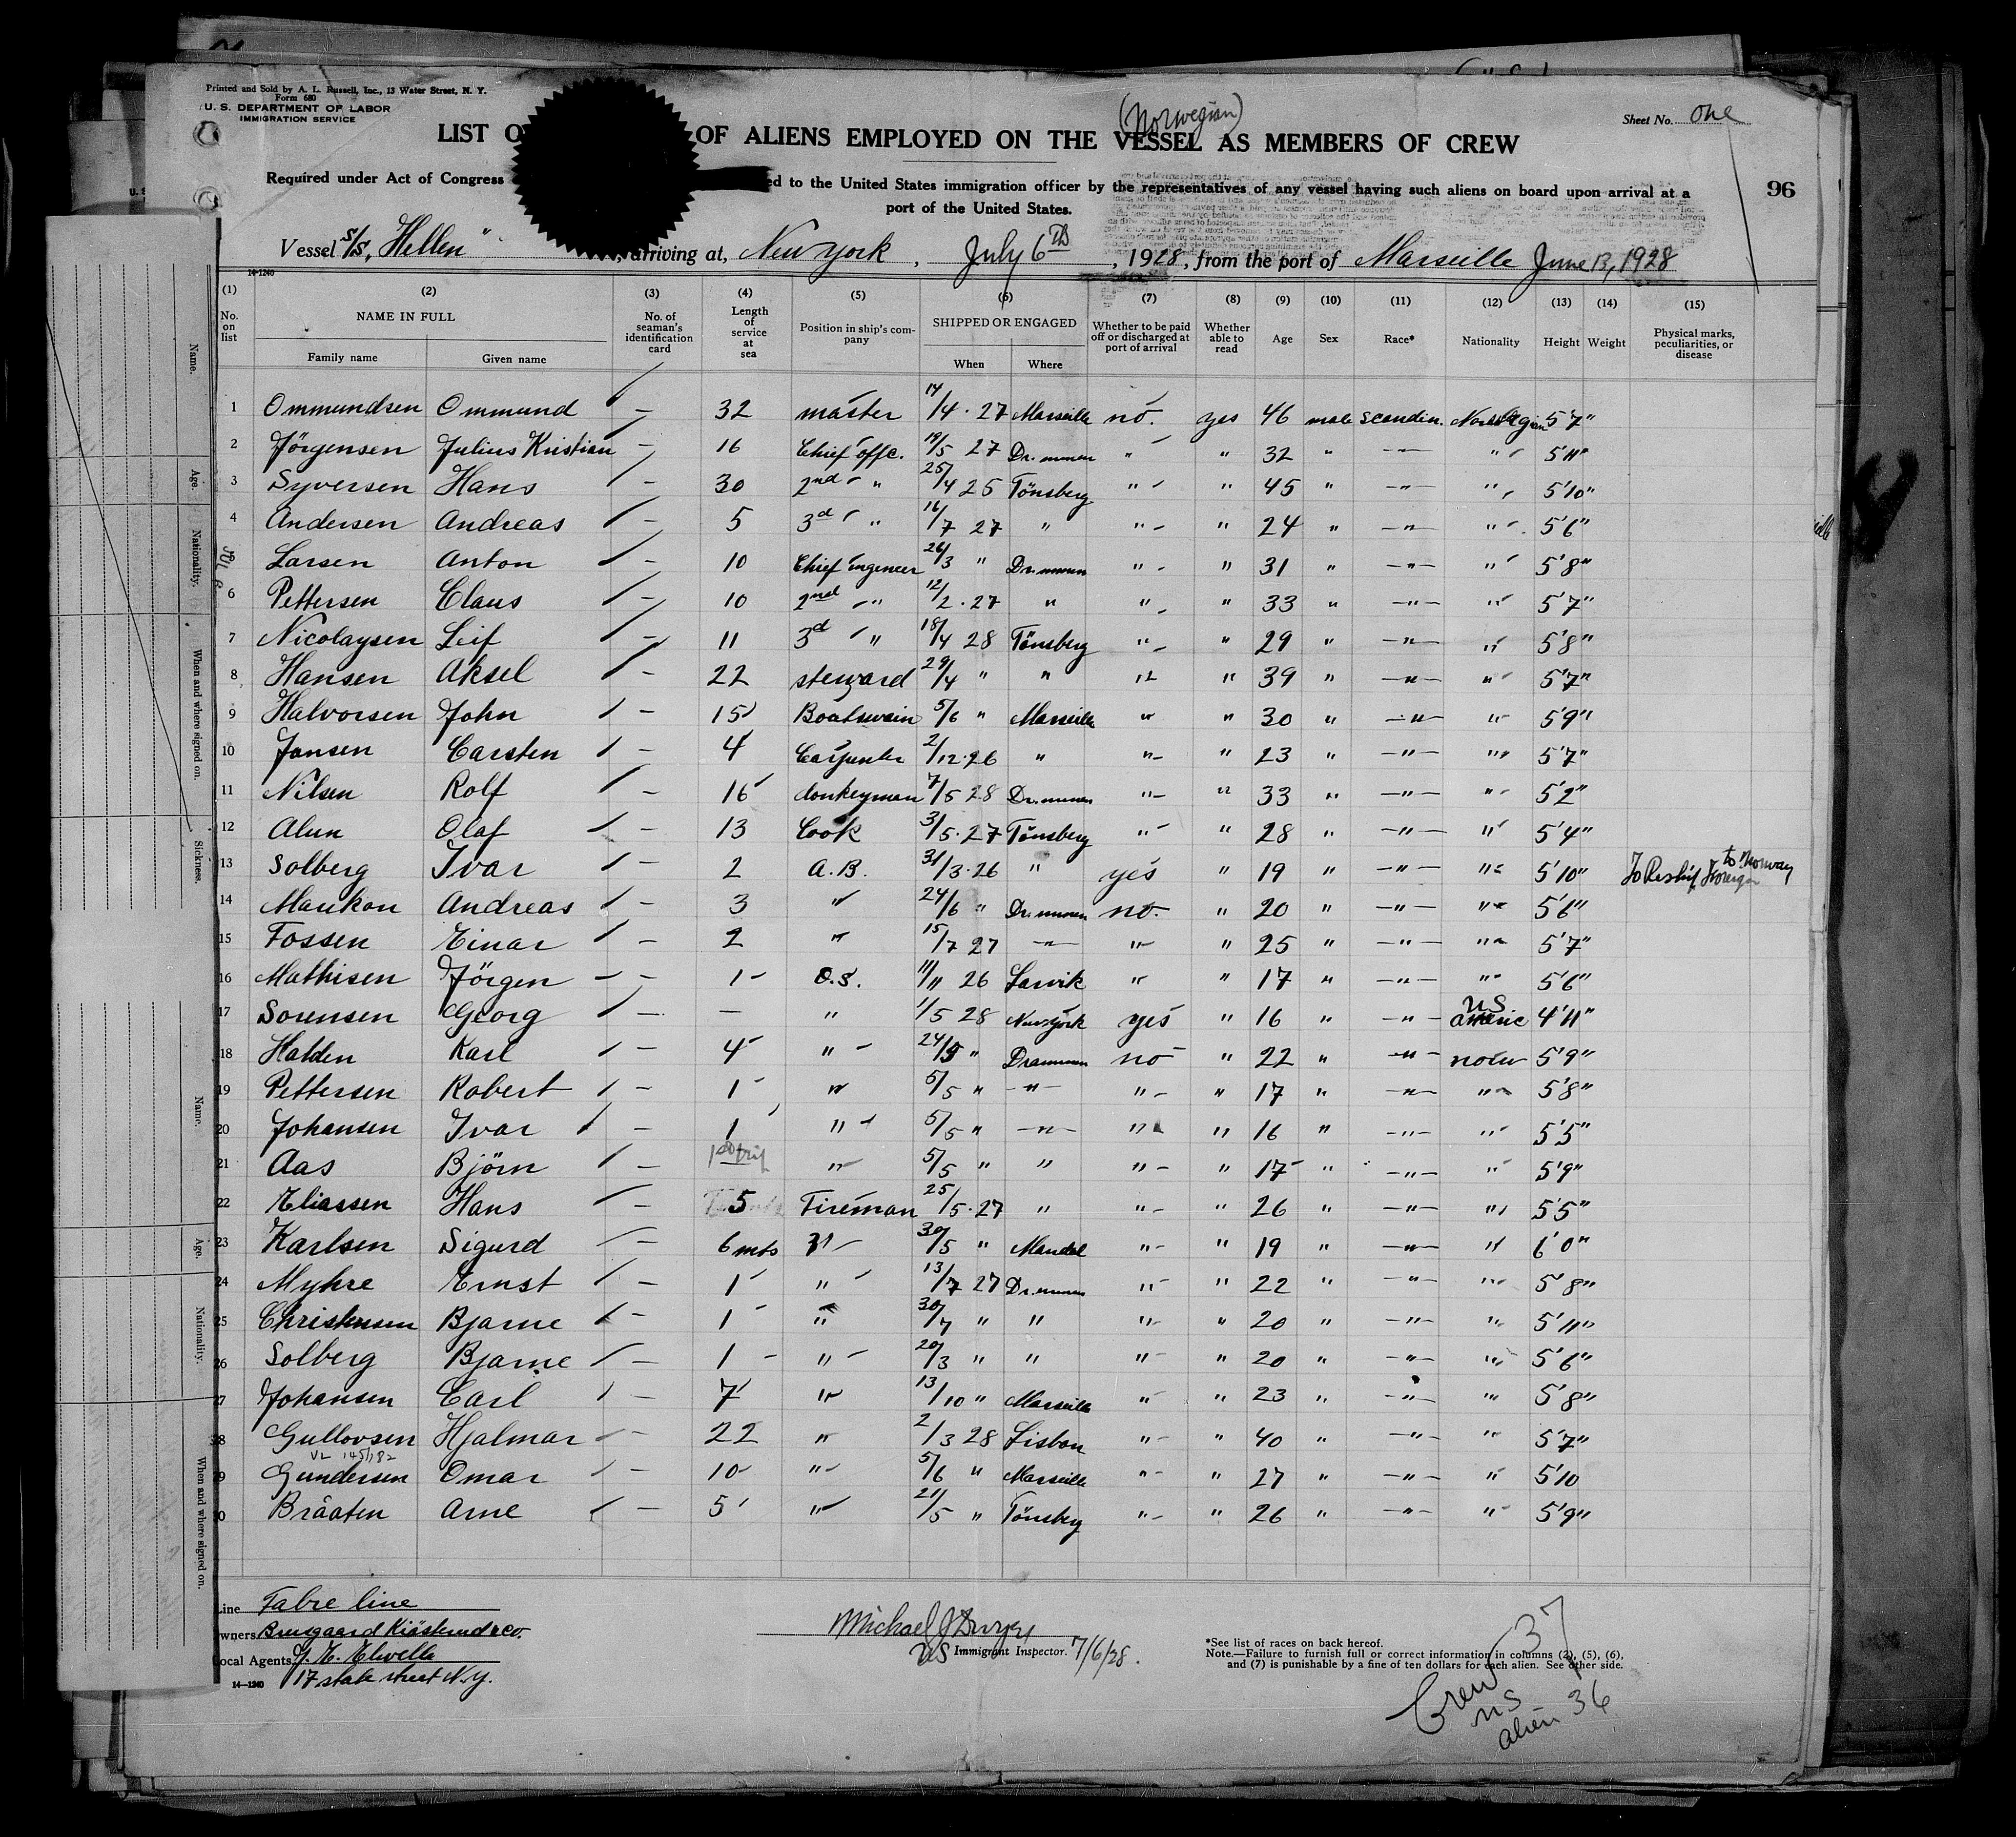 Printed and Sold by A. L. Russell, Inc., 13 Water Street, N. Y.
Form 680
U. S. DEPARTMENT OF LABOR
IMMIGRATION SERVICE
(Norwegian)
Sheet No. One
LIST O OF ALIENS EMPLOYED ON THE VESSEL AS MEMBERS OF CREW
Required under Act of Congress ed to the United States immigration officer by the representatives of any vessel having such aliens on board upon arrival at a
port of the United States.
96
Vessel S/S, "Hellen" arriving at, New York, July 6th, 1928, from the port of Marseille June 13, 1928
14-1240
(1) (2) (3) (4) (5) (6) (7) (8) (9) (10) (11) (12) (13) (14) (15)
No. on list NAME IN FULL Family name Given name No. of seaman's identification card Length of service at sea Position in ship's company SHIPPED OR ENGAGED When Where Whether to be paid off or discharged at port of arrival Whether able to read Age Sex Race* Nationality Height Weight Physical marks, peculiarities, or disease
1 Ommundsen Ommund — 32 master 14/4 · 27 Marseille no. yes 46 male Scandin. Norwegian 5'7"
2 Jörgensen Julius Kristian — 16 Chief offc. 19/5 27 Drammen " " 32 " —"— " 5'11"
3 Syversen Hans — 30 2nd " 25/4 25 Tönsberg " " 45 " —"— " 5'10"
4 Andersen Andreas — 5 3d " 16/7 27 " " " 24 " —"— " 5'6"
5 Larsen Anton — 10 Chief engeneer 26/3 " Drammen " " 31 " —"— " 5'8"
6 Pettersen Claus — 10 2nd " 12/2 · 27 " " " 33 " —"— " 5'7"
7 Nicolaysen Leif — 11 3d " 18/4 28 Tönsberg " " 29 " —"— " 5'8"
8 Hansen Aksel — 22 steward 29/4 " " " " 39 " —"— " 5'7"
9 Halvorsen John — 15 Boatswain 5/6 " Marseille " " 30 " —"— " 5'9"
10 Jansen Carsten — 4 Carpenter 2/12·26 " " " 23 " —"— " 5'7"
11 Nilsen Rolf — 16 donkeyman 7/5 28 Drammen " " 33 " —"— " 5'2"
12 Alun Olaf — 13 Cook 3/5·27 Tönsberg " " 28 " —"— " 5'4"
13 Solberg Ivar — 2 A.B. 31/3·26 " yes " 19 " —"— " 5'10" To Reship Foreign to Norway
14 Maukon Andreas — 3 " 24/6 " Drammen no. " 20 " —"— " 5'6"
15 Fossen Einar — 2 " 15/7 27 —"— " " 25 " —"— " 5'7"
16 Mathisen Jörgen — 1 O.S. 11/11 26 Larvik " " 17 " —"— " 5'6"
17 Sorensen Georg — — " 1/5 28 New York yes " 16 " —"— US americ 4'11"
18 Halden Karl — 4 " 24/5 " Drammen no " 22 " —"— norw 5'9"
19 Pettersen Robert — 1 " 5/5 " —"— " " 17 " —"— " 5'8"
20 Johansen Ivar — 1 " 5/5 " —"— " " 16 " —"— " 5'5"
21 Aas Björn — 1st trip " 5/5 " " " " 17 " —"— " 5'9"
22 Eliassen Hans — 5 Fireman 25/5·27 " " " 26 " —"— " 5'5"
23 Karlsen Sigurd — 6 mts " 30/5 " Mandal " " 19 " —"— " 6'0"
24 Myhre Ernst — 1 " 13/7 27 Drammen " " 22 " —"— " 5'8"
25 Christensen Bjarne — 1 " 30/7 " " " " 20 " —"— " 5'11"
26 Solberg Bjarne — 1 " 20/3 " " " " 20 " —"— " 5'6"
27 Johansen Carl — 7 " 13/10 " Marseille " " 23 " —"— " 5'8"
28 Gullovsen Hjalmar — 22 " 2/3 28 Lisbon " " 40 " —"— " 5'7"
29 Gundersen Omar — 10 " 5/6 " Marseille " " 27 " —"— " 5'10
30 Bråaten Arne — 5 " 21/5 " Tönsberg " " 26 " —"— " 5'9"
Line Fabre line
Owners Bruusgaard Kiösterud & Co.
Local Agents J. W. Elwell
17 state street N.Y.
14—1240
Michael J Dwyer
US Immigrant Inspector. 7/6/28.
*See list of races on back hereof.
Note.—Failure to furnish full or correct information in columns (2), (5), (6),
and (7) is punishable by a fine of ten dollars for each alien. See other side.
Crew 37
US
alien 36
Name.
Age.
Nationality.
When and where signed on.
Sickness.
Name.
Age.
Nationality.
When and where signed on.